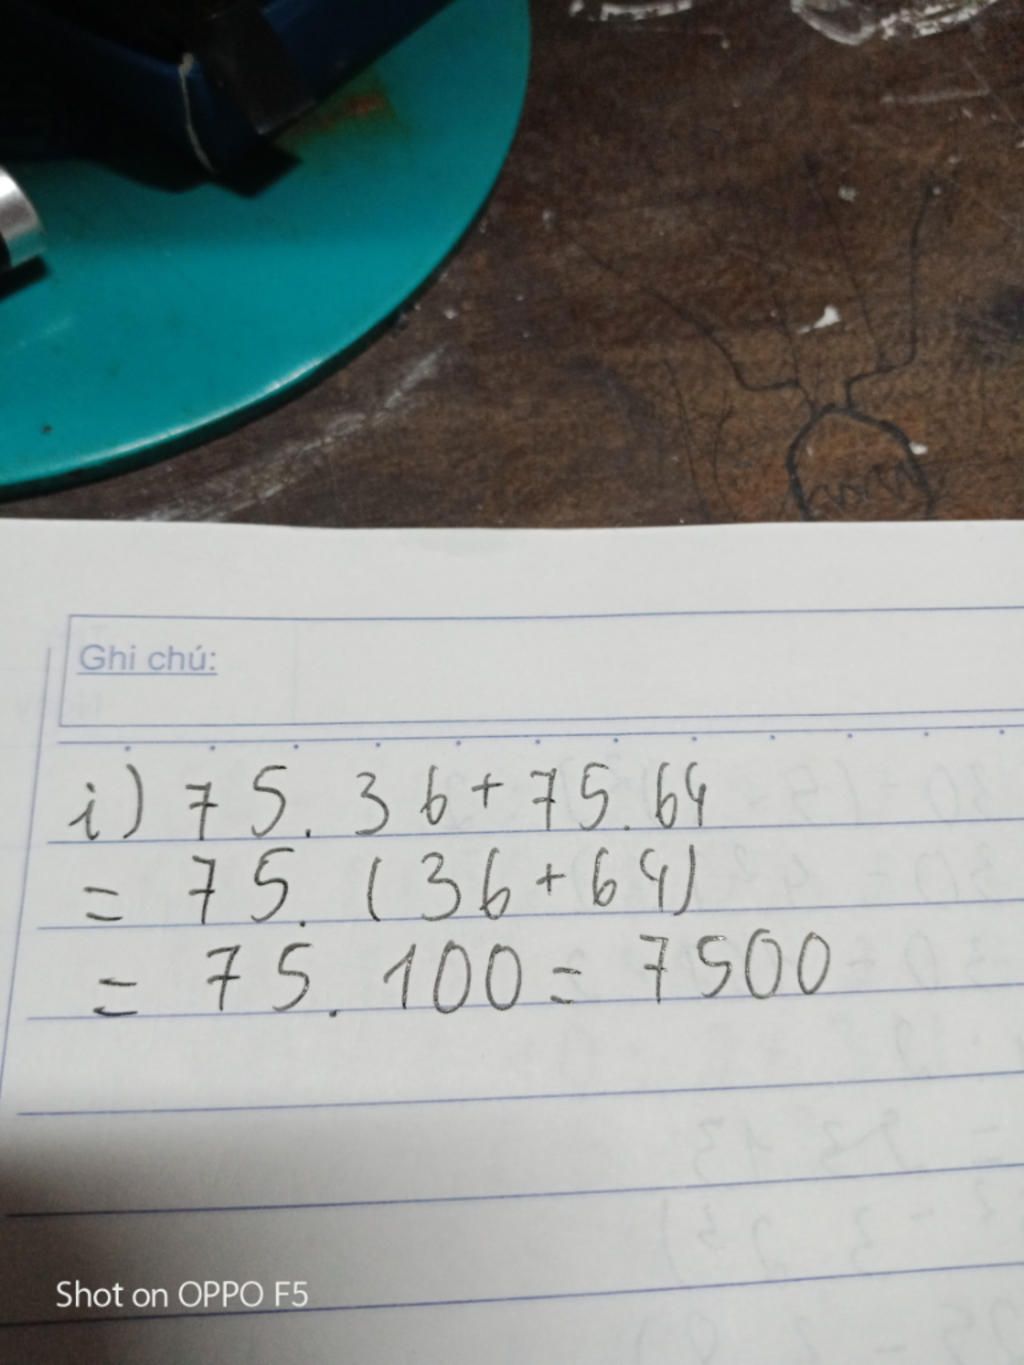 Ghi chú:
i) 75. 36 + 75. 64
= 75. (36 + 64)
= 75. 100 = 7500
Shot on OPPO F5